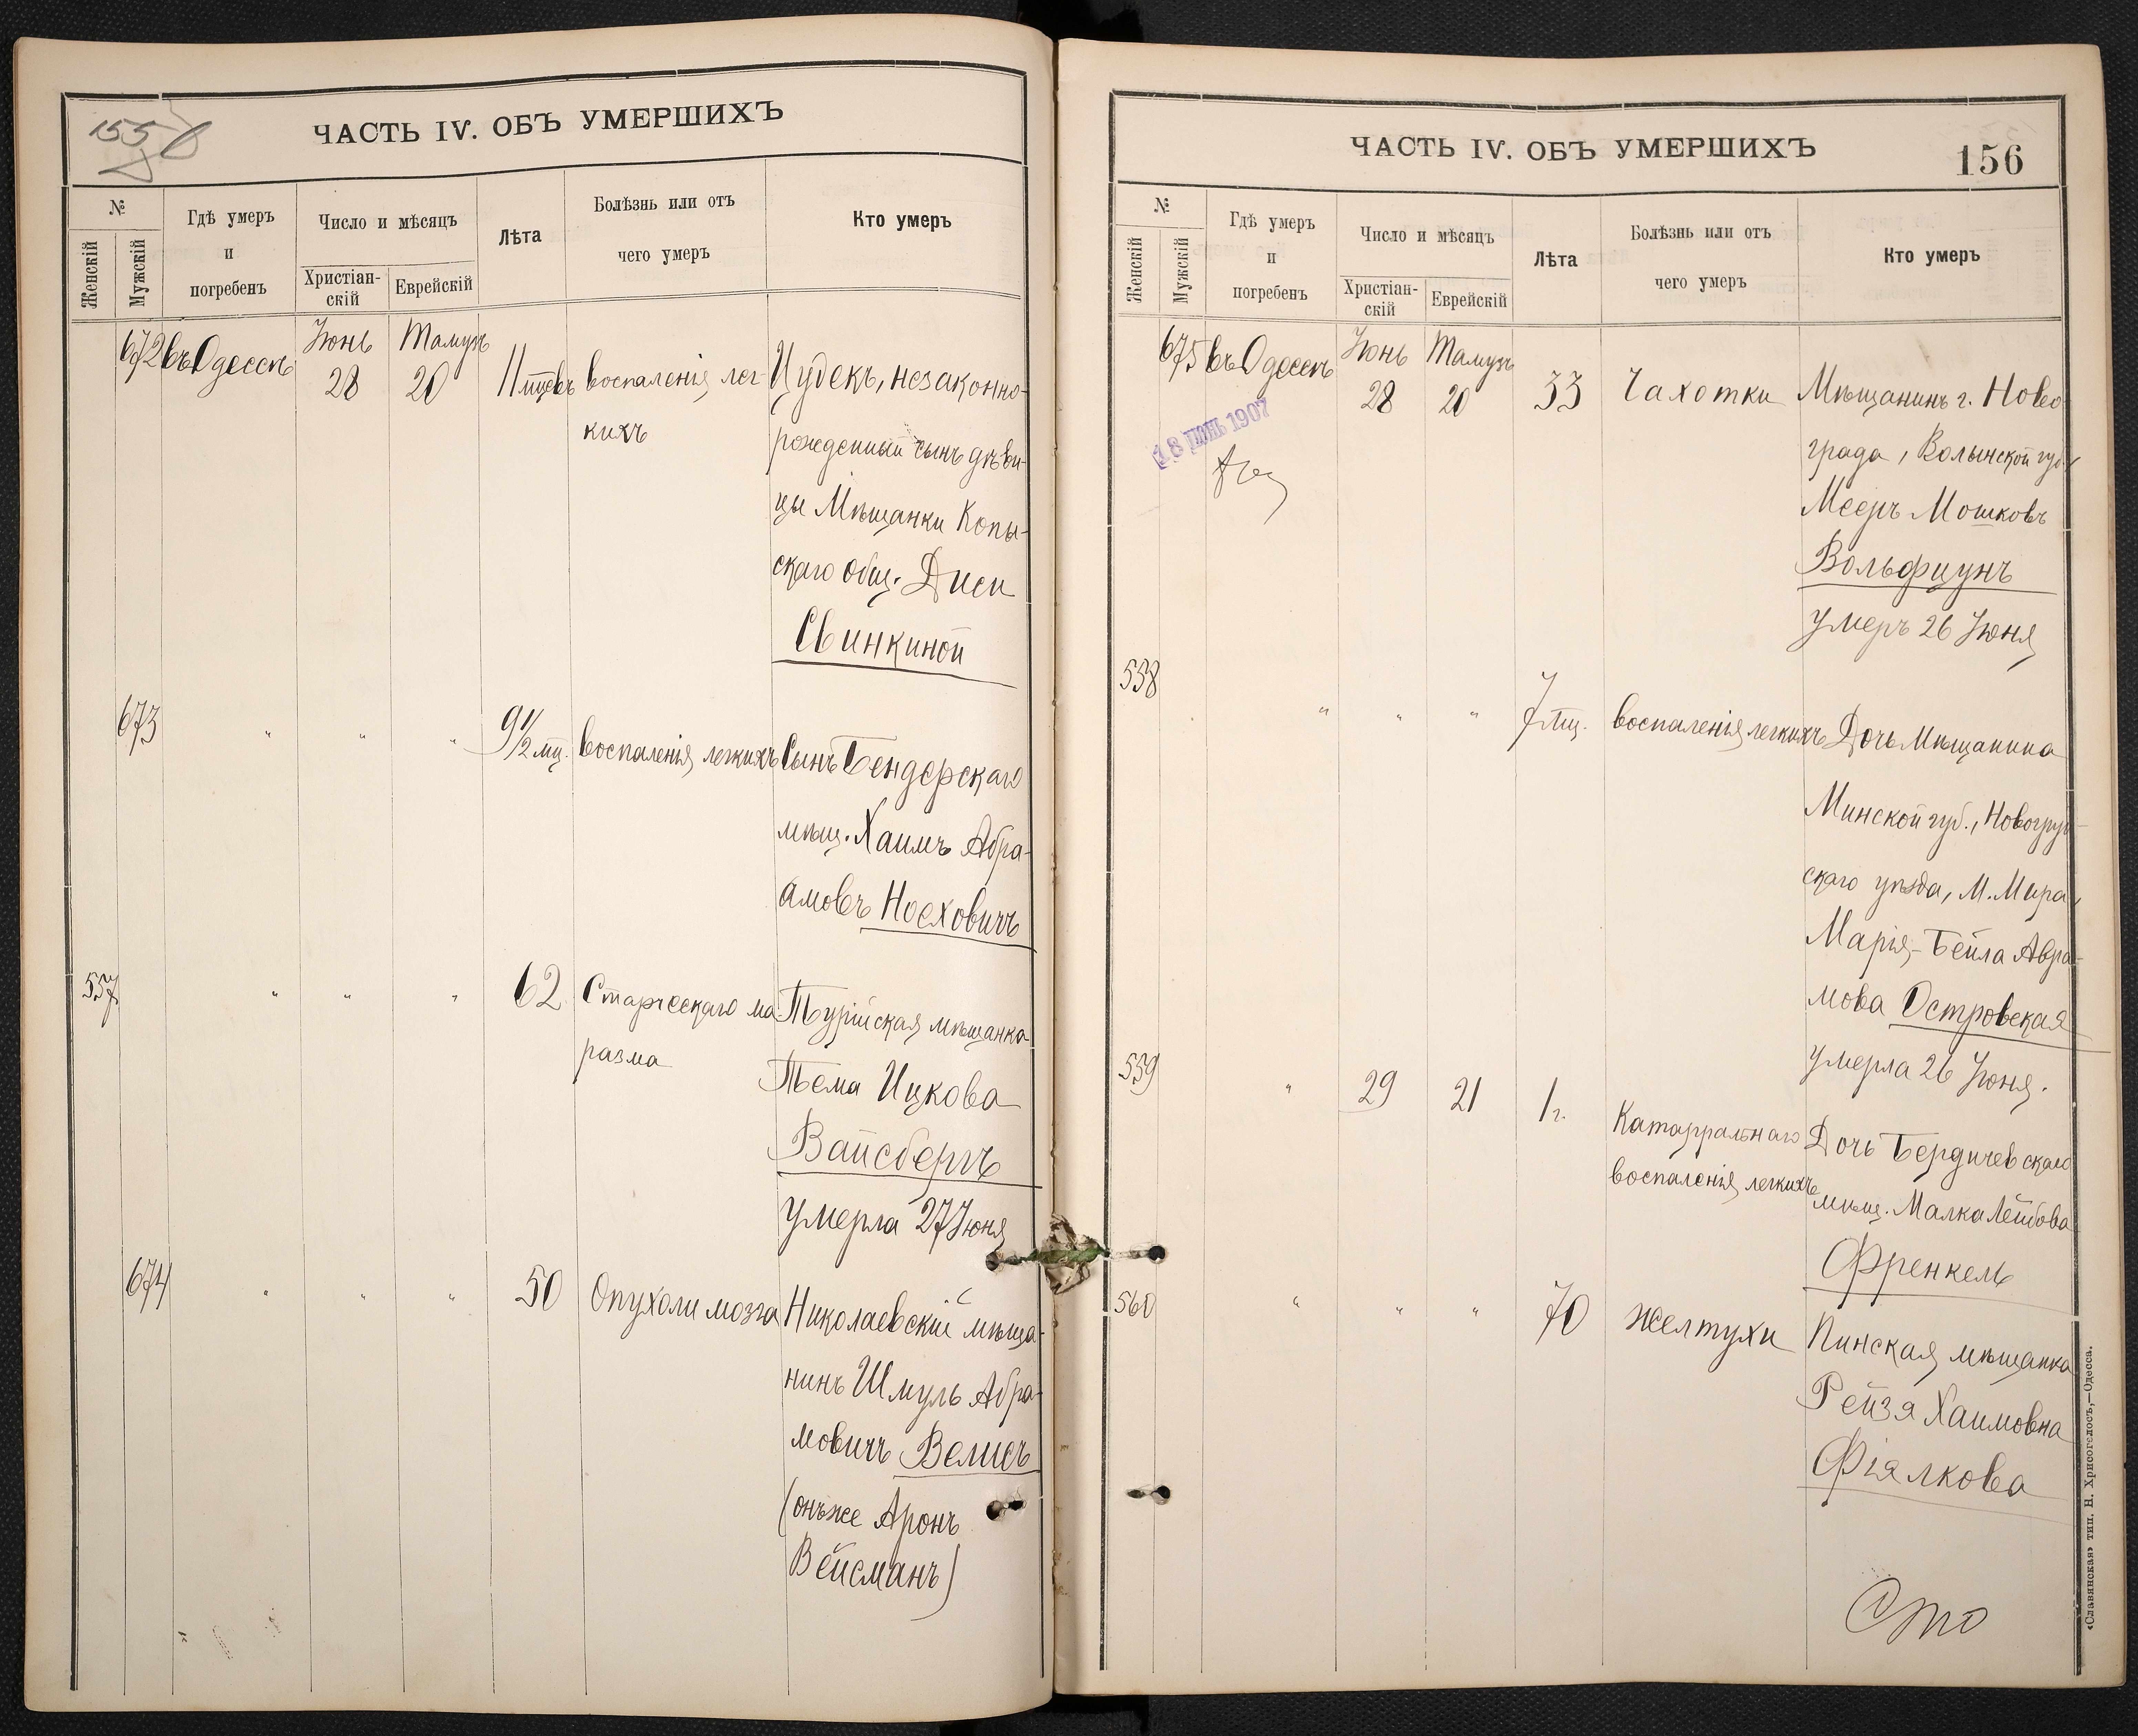 155 б
ЧАСТЬ IV. ОБЪ УМЕРШИХЪ
№
Женскій
Мужскій
Гдѣ умеръ
и
погребенъ
Число и мѣсяцъ
Христіан-
скій
Еврейскій
Лѣта
Болѣзнь или отъ
чего умеръ
Кто умеръ
672 въ Одессѣ Іюнь 28 Тамуз 20 11 мцевъ воспаленія лег-
кихъ
Цудекъ, незаконно-
рожденный сынъ дѣви-
цы Мѣщанки Копы-
скаго общ. Диси
Свинкиной
673 " " " 9 1/2 мц. воспаленія легкихъ Сынъ Бендерскаго
мѣщ. Хаимъ Абра-
амовъ Ноеховичъ
557 " " " 62 Старческаго ма-
разма
Турійская мѣщанка
Тема Ицкова
Вайсбергъ
умерла 27 Іюня
674 " " " 50 Опухоли мозга Николаевскій мѣща-
нинъ Шмуль Абра-
мовичъ Велисъ
(онъ же Аронъ
Вейсманъ)
ЧАСТЬ IV. ОБЪ УМЕРШИХЪ
156
№
Женскій
Мужскій
Гдѣ умеръ
и
погребенъ
Число и мѣсяцъ
Христіан-
скій
Еврейскій
Лѣта
Болѣзнь или отъ
чего умеръ
Кто умеръ
675 въ Одессѣ Іюнь 28 Тамузъ 20 33 Чахотки Мѣщанинъ г. Ново-
града, Волынской губ.
Мееръ Мошковъ
Вольфцунъ
умеръ 26 Іюня
18 ИЮНЬ 1907
558 " " " 7 мц. воспаленія легкихъ Дочь Мѣщанина
Минской губ., Новогруд-
скаго уѣзда, М. Мира,
Марія-Бейла Авра-
мова Островская
умерла 26 Іюня.
559 " 29 21 1 г. Катарральнаго
воспаленія легкихъ
Дочь Бердичевскаго
мѣщ. Малка Лейбова
Френкель
560 " " " 70 Желтухи Пинская мѣщанка
Рейзя Хаимовна
Фіялкова
Сто
«Славянская» тип. Н. Хрисогелосъ,—Одесса.